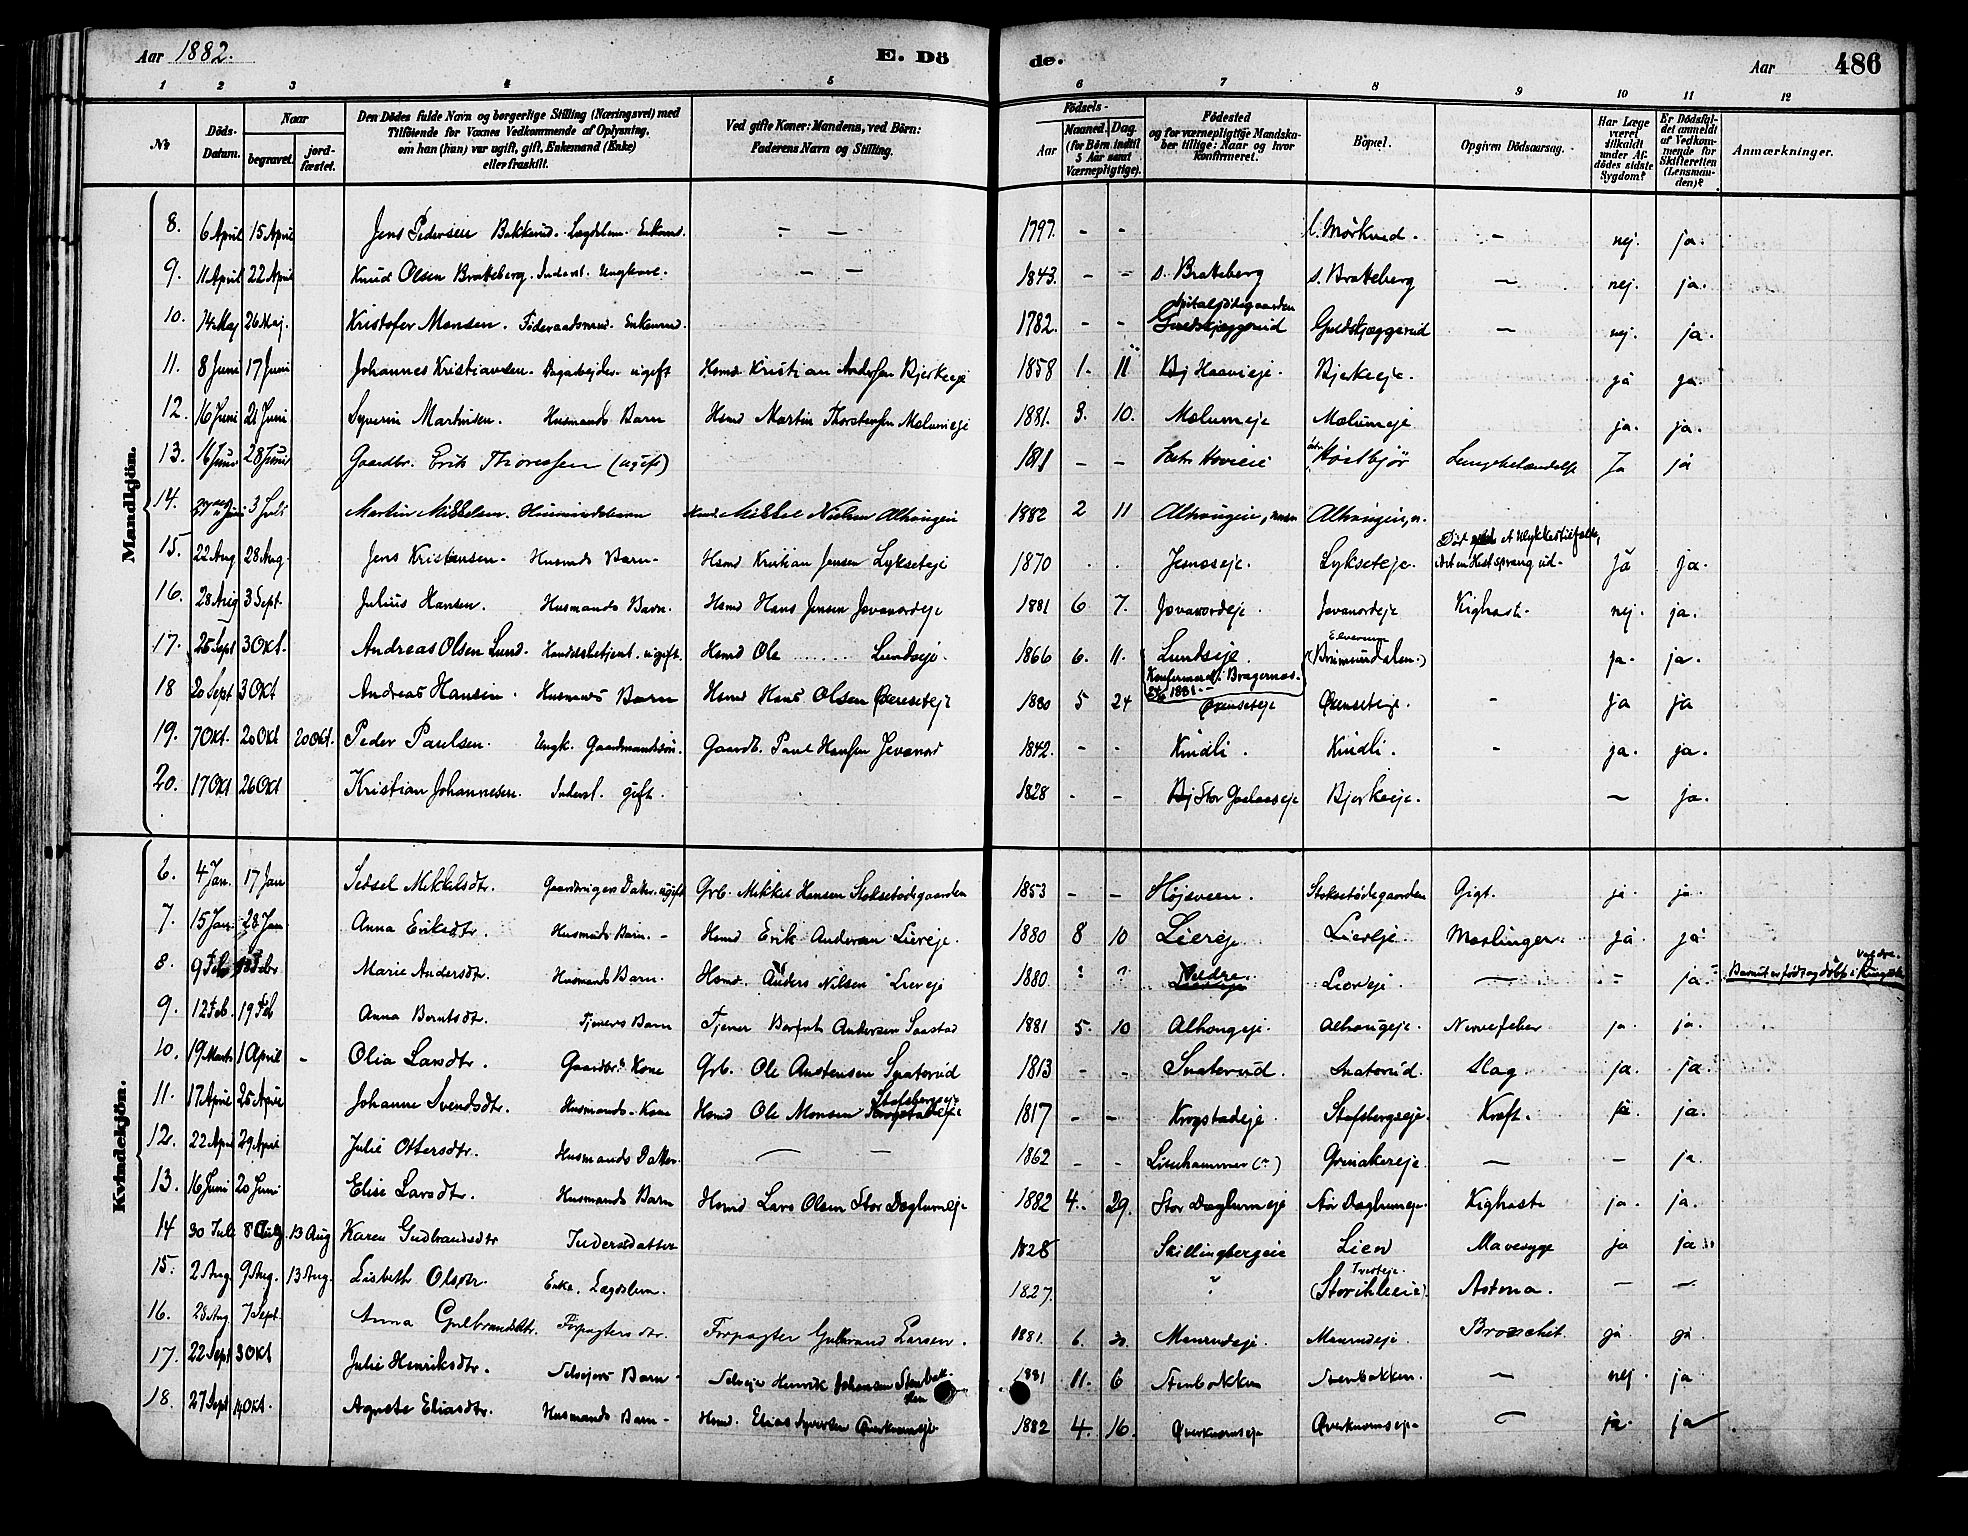 Aar 1882.
E. Dö
de.
Aar 486
1 2 3 4 5 6 7 8 9 10 11 12
No
Döds-Datum.
Naar
begravet.
jord-fæstet.
Den Dödes fulde Navn og borgerlige Stilling (Næringsvei) med
Tilföiende for Voxnes Vedkommende af Oplysning,
om han (hun) var ugift, gift, Enkemand (Enke)
eller fraskilt.
Ved gifte Koner: Mandens, ved Börn:
Faderens Navn og Stilling.
Födsels-
Aar
Maaned. Dag.
(for Börn indtil
5 Aar samt
Værnepligtige).
Födested
og for værnepligtige Mandska-
ber tillige: Naar og hvor
konfirmeret.
Bopæl.
Opgiven Dödsaarsag.
Har Læge
været
tilkaldt
under Af-
dödes sidste
Sygdom?
Er Dödsfal-
det anmeldt
af Vedkom-
mende for
Skifteretten
(Lensman-
den)?
Anmærkninger.
Mandkjön.
8. 6 April 15 April Jens Pedersen Bakkerud. Lægdslem. Enkemd. - - 1797. - - l. Mörkved. - nej. ja.
9. 11 April 22 April Knud Olsen Bratteberg. Inderst. Ungkarl. - - 1843. - - s. Bratteberg s. Bratteberg - nej. ja.
10. 14 Maj 26 Maj. Kristofer Monsen. Föderaadsmand. Enkemd. 1782. - - Guldskjæggerud Guldskjæggerud - nej. ja.
11. 8 Juni 17 Juni Johannes Kristiansen. Dagarbejder. ugift Hsmd Kristian Andersen Bjerkeeje 1858 1. 11 Bj Haavieje. Bjerkeeje. ja ja.
12. 16 Juni 21 Juni Syverin Martinsen. Husmands Barn Hsmd Martin Thorstensen Mælumeje 1881. 3. 10. Mælumeje Mælumeje. ja. ja.
13. 16 Juni 28 Juni Gaardbr. Erik Thoresen (ugift) 1811 - - Hovieie Lungebetændelse Ja ja
14. 3 Juli Martin Mikkelsen. Husmandsbarn Hsmd Mikkel Nielsen Alhaugeie 1882 2 11 Alhaugeie, Alhaugeie,
15. 22 Aug 28 Aug. Jens Kristensen. Husmds Barn. Hsmd Kristian Jensen Lykseteje 1870 . . Jemseje. Lykseteje. Död ved et Ulykkestilfælde, at en Hest sprang ud. ja ja.
16. 28 Aug 3 Sept. Julius Hansen. Husmands Barn. Hsmd Hans Jensen Jevanordeje 1881 6 7. Jevanordeje. Jevanordeje Kighoste. nej. ja.
17. 25 Sept 3 Okt. Andreas Olsen Lund. Handelsbetjent. ugift. Hsmd Ole ....... Lundseje. 1866 6. 11. Lundseje. Konfirmered i Bragernæs. 1881. Elverum (Brumunddalen.) ja. ja.
18 20 Sept 3 Okt Andreas Hansen. Husmands Barn Hsmd Hans Olsen Øxenseteje 1880 5 24 Øxenseteje Øxenseteje. - ja ja
19. 7 Okt. 20 Okt 20 Okt. Peder Paulsen. Ungk. Gaardmandssön. Gaardb. Paul Hansen Jevanord 1842. - - Kindli. Kindli. - ja. ja.
20. 17 Okt 26 Okt Kristian Johannesen. Inderst. gift. 1828 - - Bj Stor Gaalaaseje Bjerkeeje. - ja.
Kvindekjön.
6. 4 Jan. 17 Jan Sidsel Mikkelsdtr. Gaardbrugers Datter. ugift Grb. Mikkel Hansen Stoksetödegaarden 1853 - - Höjsveen. Stoksetödegaarden Gigt. ja ja.
7. 15 Jan. 28 Jan Anna Eriksdtr. Husmands Barn. - Hsmd Erik Andersen Liereje. 1880 8 10 Liereje Liereje. Mæslinger. ja. ja.
8. 9 Feb. 18 Febr Marie Andersdtr. Husmands Barn. Hsmd. Anders Nilsen Liereje 1880. ? ? Veldre. Liereje Liereje. - - ja. Barnet er födt og döbt i Ringsaker Veldre.
9. 12 Feb. 19 Feb Anna Berntsdtr. Tjeners Barn Tjener Bernt Andersen Saastad 1881 5. 10 Alhougeje. Alhougeje. Nervefeber ja. ja.
10. 19 Marts 1 April - Olia Larsdtr. Gaardbr.s Kone Grb. Ole Austensen Snaterud 1813 - - Snaterud. Snaterud. Slag ja. ja.
11. 17 April 25 April Johanne Svendsdtr. Husmands. Kone Hsmd Ole Monsen Krogstadeje Stafsbergseje 1817 - - Krogstadeje. Stafsbergseje. Kræft. ja ja.
12. 22 April 29 April Julie Ottersdtr. Husmands Datter. - - 1862 - - Lillehammer (?) Grinakereje. - - ja.
13. 16 Juni 20 Juni Elise Larsdtr. Husmands Barn Hsmd Lars Olsen Stor Dæghumeje 1882 4. 29. Stor Dæghumeje Stor Dæghumeje. Kighoste ja. ja.
14 30 Juli 8 Aug 13 Aug Karen Gudbrandsdtr Inderstdatter 1828 Skillingbergeie Lien Mavesyge ja ja
15. 2 Aug. 9 Aug. 13 Aug. Lisbeth Olsdtr. Enke. Lægdslem. 1827. " (Storihleeie). Astma. - -
16. 28 Aug 7 Sept Anna Gulbrandsdtr. Forpagters dtr. Forpagter Gulbrand Larsen. 1881. 6. 30. Menrudeje. Menrudeje. Bronchit. ja. ja.
17. 22 Sept 3 Okt Julie Henriksdtr. Selvejers Barn. Selvejer Henrik Johansen Stenbakken 1881 11. 6 Stenbakken Stenbakken. - nej. ja
18. 27 Sept 14 Okt. Agnete Eliasdtr. Husmands Barn - Hsmd. Elias Syversen Øverkvernseje 1882 4. 16. Øverkvernseje Øverkvernseje - ja. ja